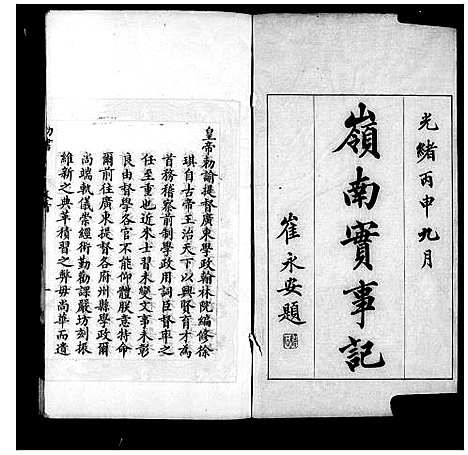 光緒丙申九月
嶺南實事記
崔永安題
皇帝勅諭提督廣東學政翰林院編修徐
琪自古帝王治天下以興賢育才為
首務稽察前制學政用詞臣督率之
任至重也近來士習未變文事未彰
良由督學各官不能仰體朕意特命
爾前往廣東提督各府州縣學政爾
尚端軌儀崇經術勤勸課嚴坊刻振
維新之典革積習之弊毋尚華而遺